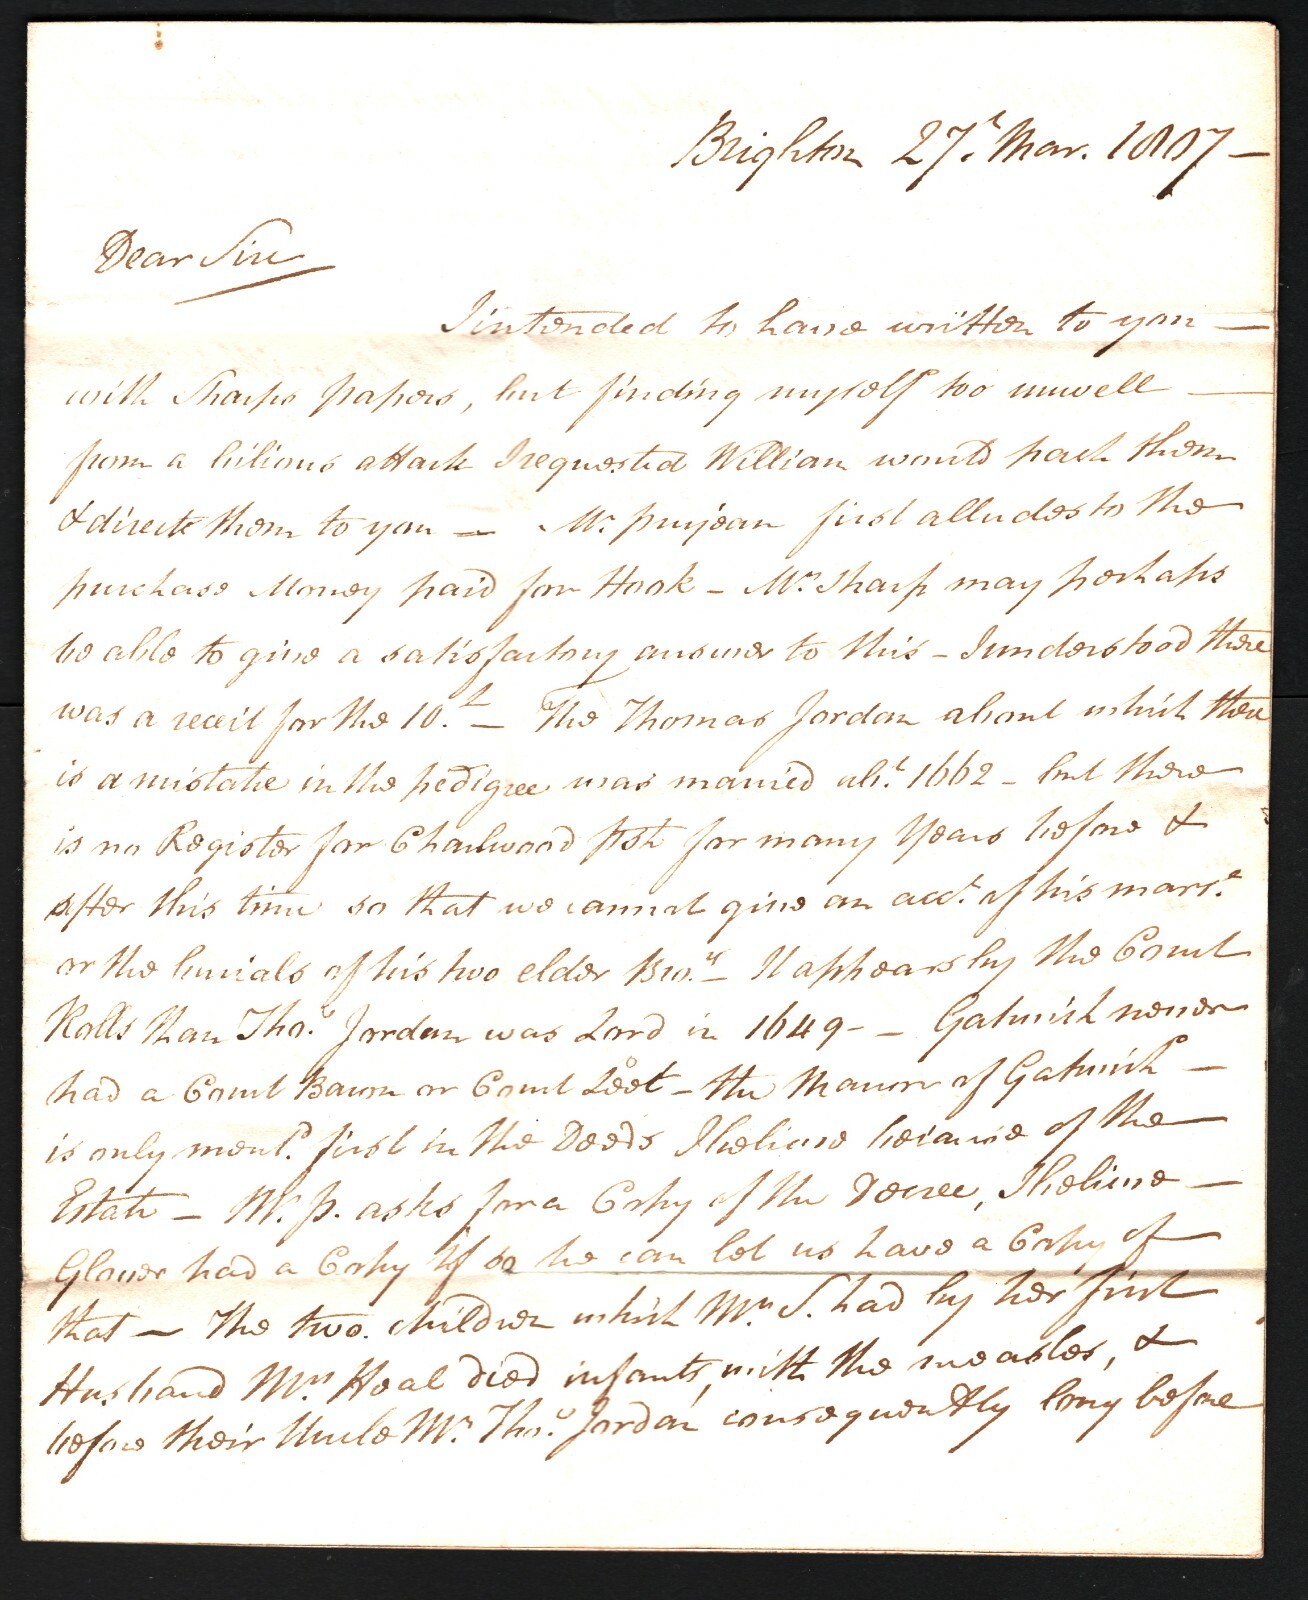 Brighton 27.th Mar. 1807 —
Dear Sir
I intended to have written to you —
with Sharps papers, but finding myself too unwell —
from a bilious attack I requested William would pack them
& direct them to you — Mr. Prujean first alludes to the
purchase Money paid for Hook – Mrs. Sharp may perhaps
be able to give a satisfactory answer to this – I understood there
was a receit for the 10.th – The Thomas Jordan about which there
is a mistake in the pedigree was married abt. 1662 – but there
is no Register for Charlwood psh for many Years before &
after this time so that we cannot give an acct. of his marre.
or the burials of his two elder Bros. – It appears by the Court
Rolls than Thos. Jordan was Lord in 1649 – – Gatwick never
had a Court Baron or Court Leet – the Manor of Gatwick –
is only mentd. first in the Deeds I believe because of the
Estate – Mr. P. asks for a Copy of the Decree, I believe –
Glover had a Copy if so he can let us have a Copy of
that – The two children which Mrs S. had by her first
Husband Mr. Heal died infants, with the measles, &
before their Uncle Mr. Thos. Jordan consequently long before